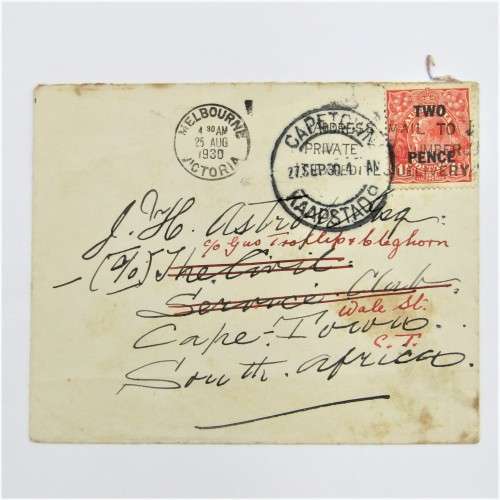 MELBOURNE
4 30 AM
25 AUG
1930
VICTORIA
CAPETOWN
27 SEP 30. 4 AM
KAAPSTAD
ADDRESS MAIL TO
PRIVATE UNDER
DELIVERY
TWO
PENCE
J. H. Esq.
c/o Cleghorn
(C/o) The Civil
Service Club.
Wale St.
Cape-Town.
C.T.
South Africa.